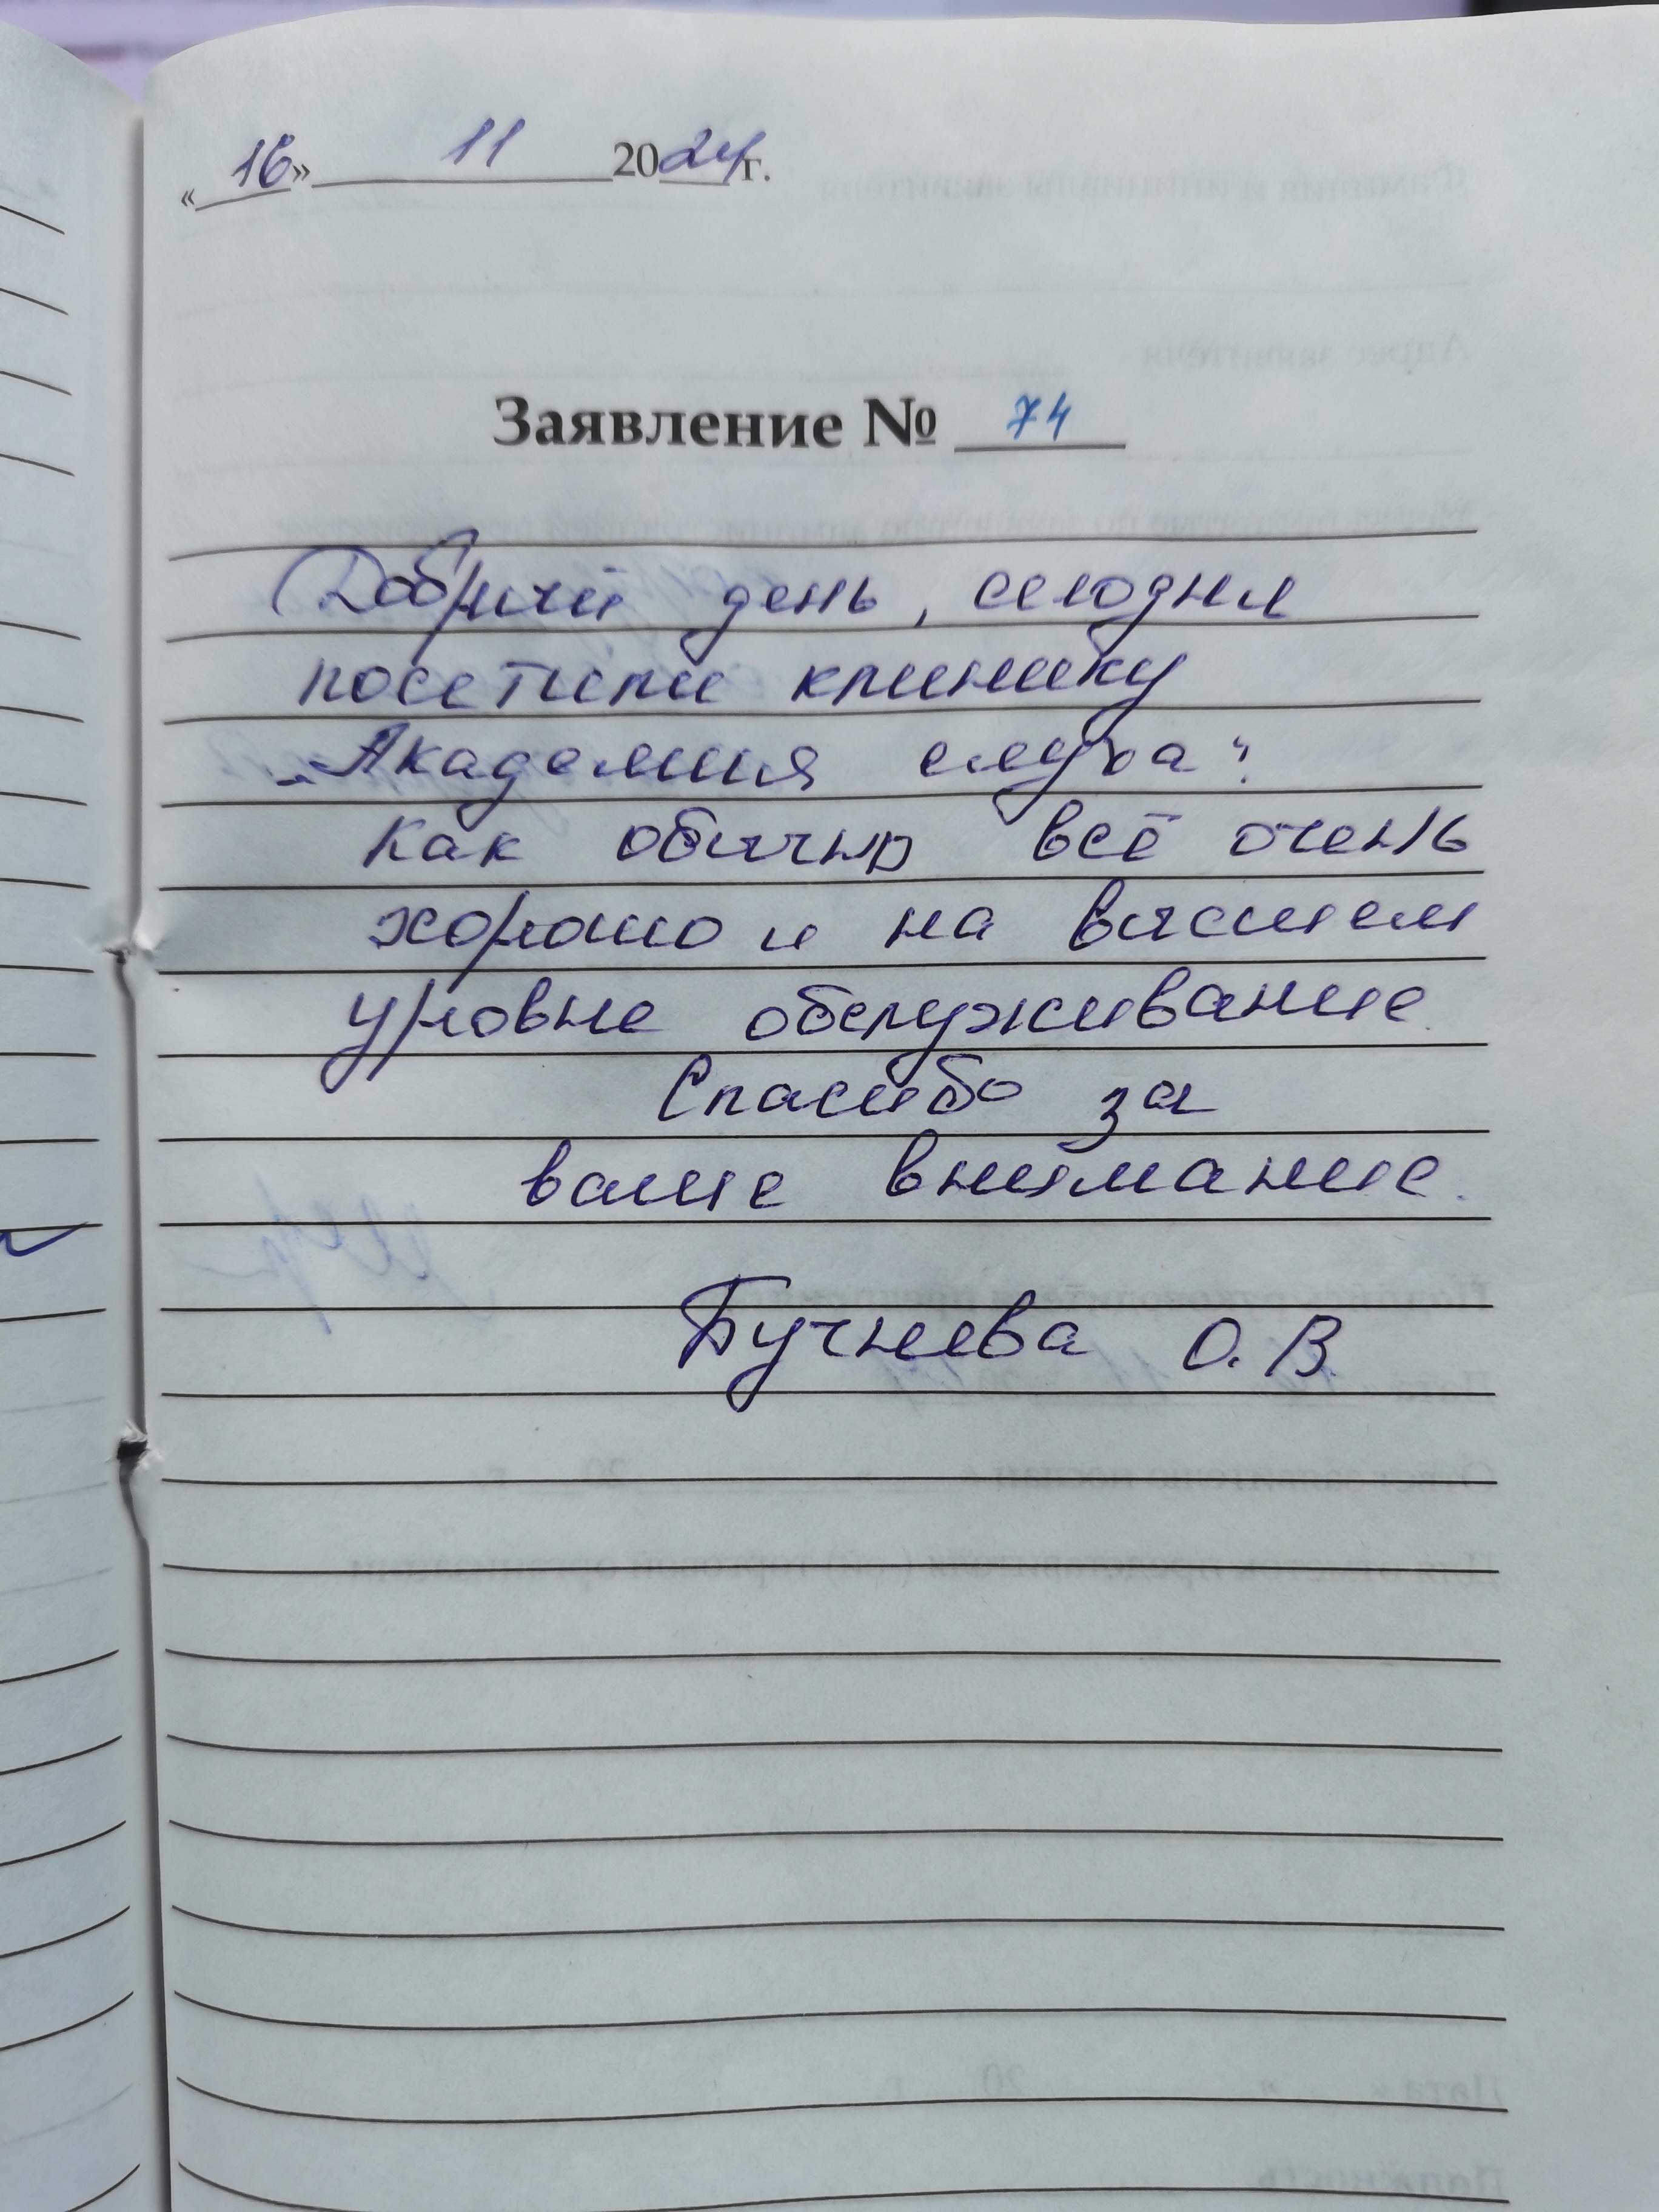 «16» 11 2024г.
Заявление № 74
Добрый день, сегодня
посетили клинику
„Академия слуха“.
Как обычно всё очень
хорошо и на высшем
уровне обслуживание.
Спасибо за
ваше внимание.
Бучнева О.В.